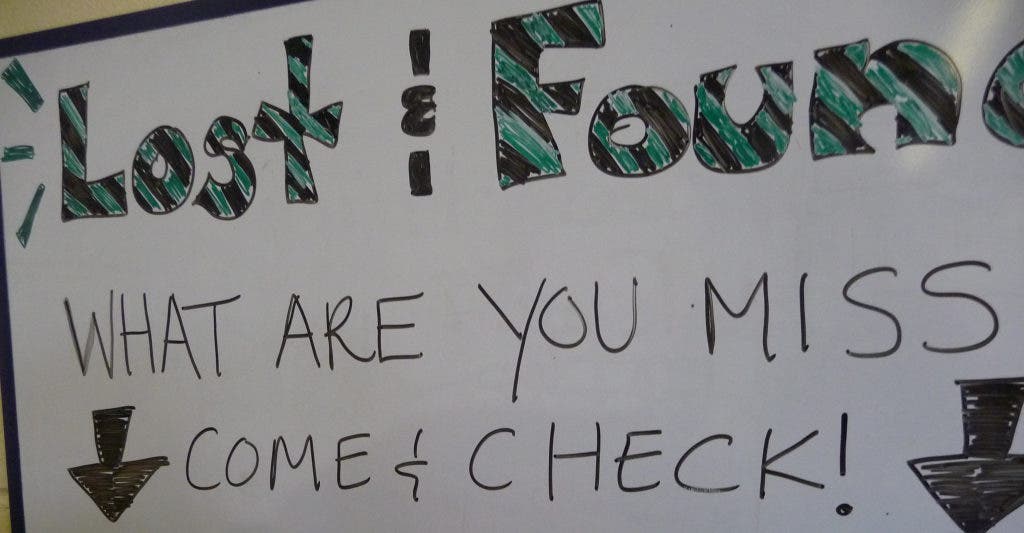 Lost & Foun
WHAT ARE YOU MISS
COME & CHECK!